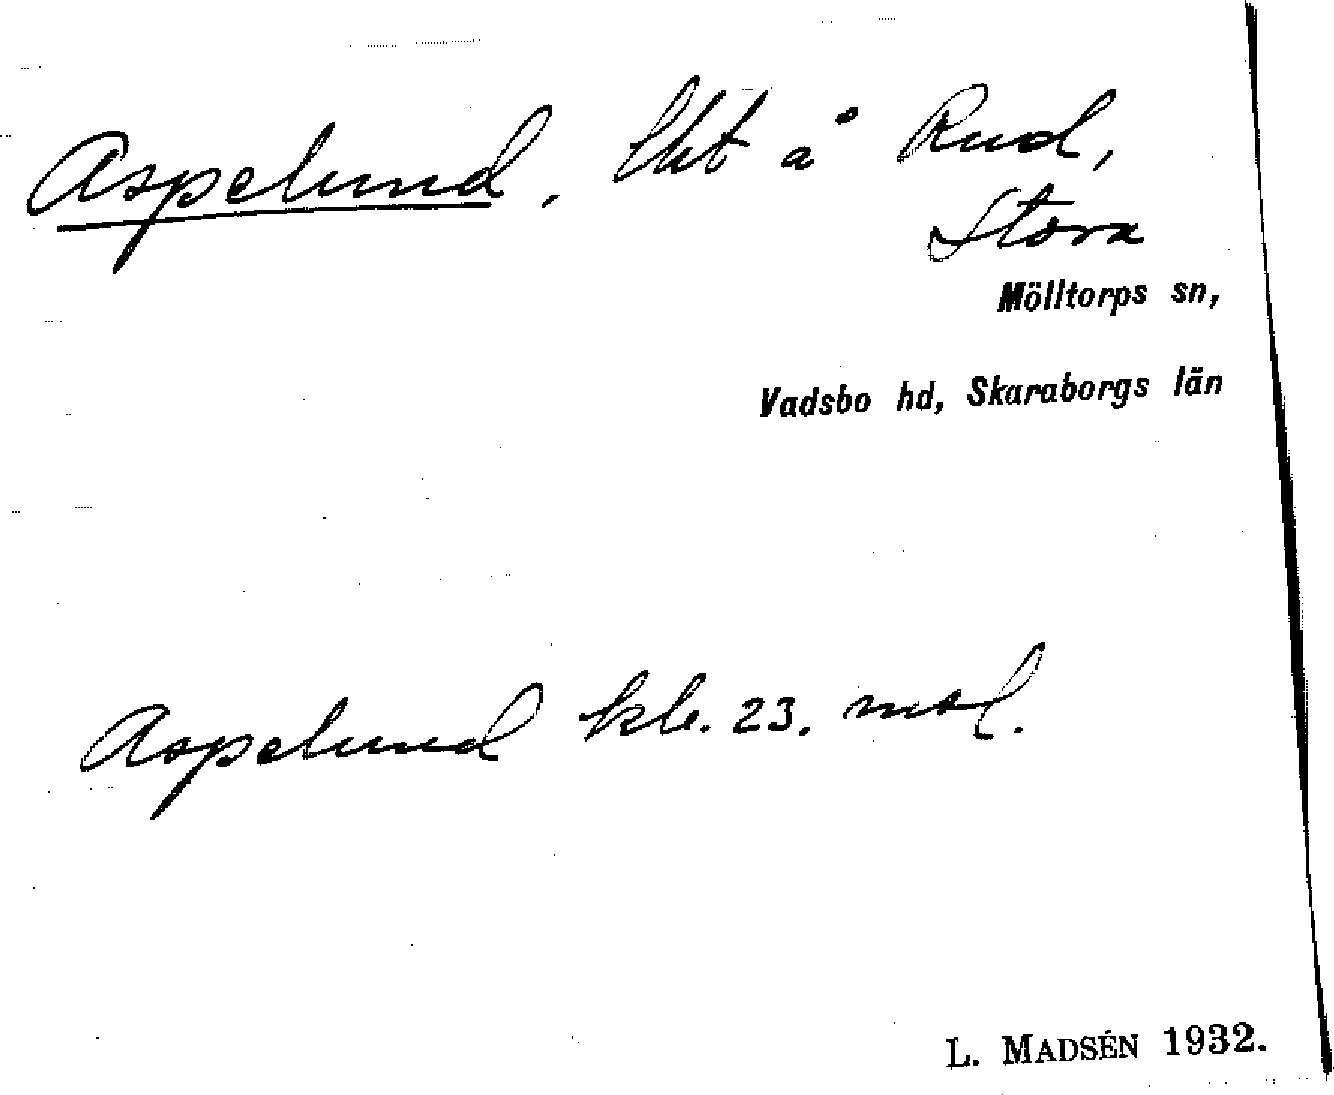 Aspelund, lht å Rud,
Stora
Mölltorps sn,
Vadsbo hd, Skaraborgs län
Aspelund kle. 23. mtl.
L. MADSÉN 1932.